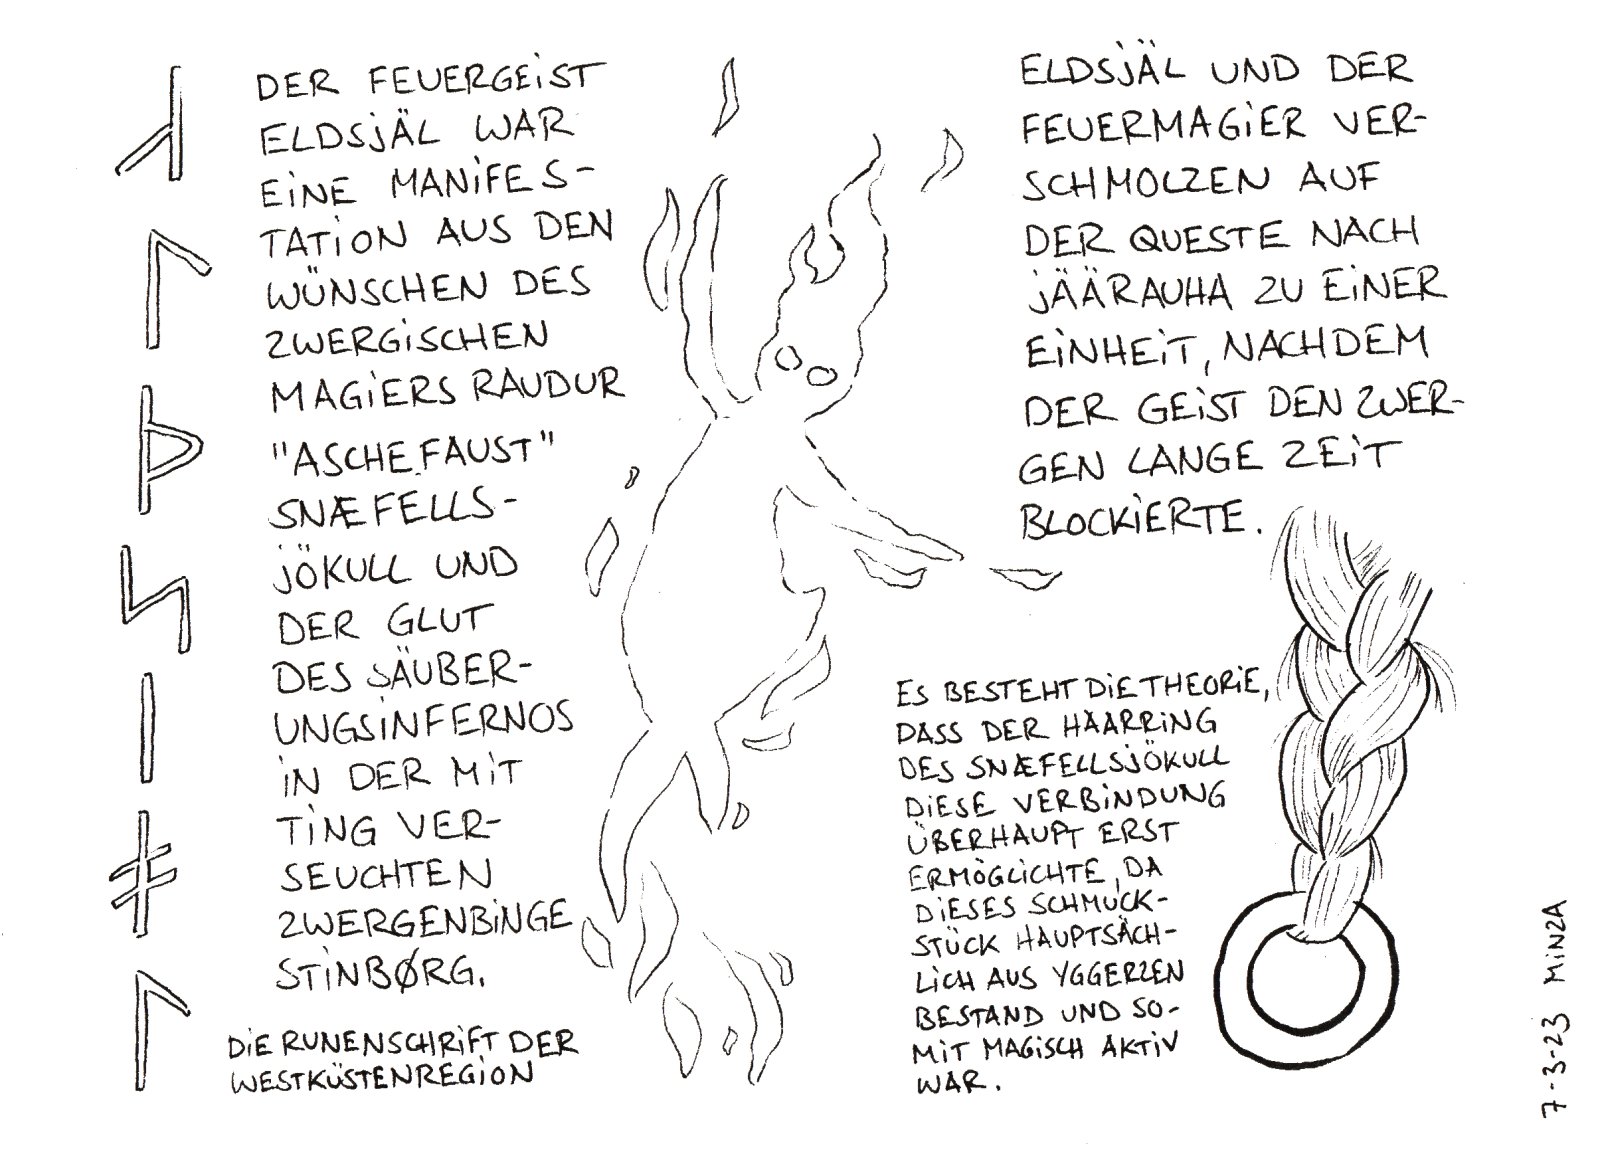 DER FEUERGEIST
ELDSJÄL WAR
EINE MANIFES-
TATION AUS DEN
WÜNSCHEN DES
ZWERGISCHEN
MAGIERS RAUDUR
"ASCHEFAUST"
SNÆFELLS-
JÖKULL UND
DER GLUT
DES SÄUBER-
UNGSINFERNOS
IN DER MIT
TING VER-
SEUCHTEN
ZWERGENBINGE
STINBØRG.
DIE RUNENSCHRIFT DER
WESTKÜSTENREGION
ELDSJÄL UND DER
FEUERMAGIER VER-
SCHMOLZEN AUF
DER QUESTE NACH
JÄÄRAUHA ZU EINER
EINHEIT, NACHDEM
DER GEIST DEN ZWER-
GEN LANGE ZEIT
BLOCKIERTE.
ES BESTEHT DIE THEORIE,
DASS DER HAARRING
DES SNÆFELLSJÖKULL
DIESE VERBINDUNG
ÜBERHAUPT ERST
ERMÖGLICHTE, DA
DIESES SCHMUCK-
STÜCK HAUPTSÄCH-
LICH AUS YGGERZEN
BESTAND UND SO-
MIT MAGISCH AKTIV
WAR.
7-3-23 MINZA